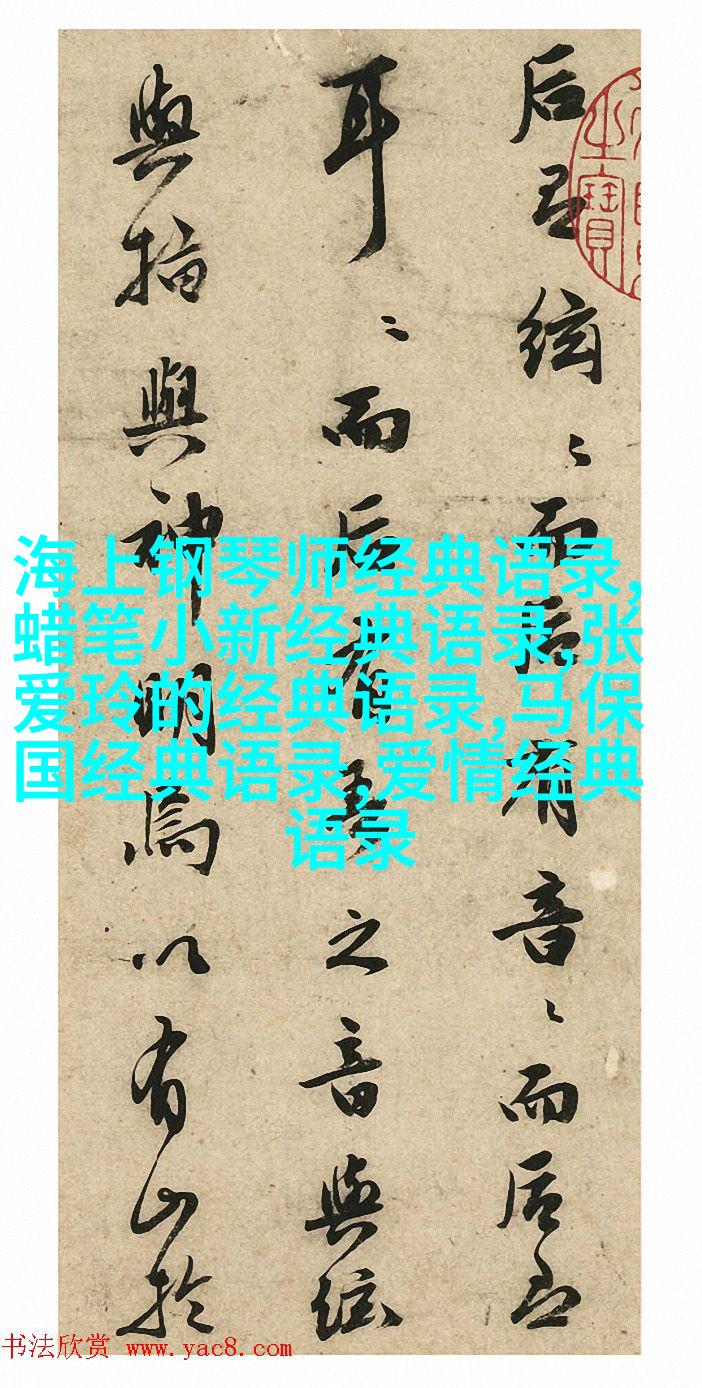 后絃〻而后有音〻而后
耳〻而后有之音與絃
與指與神明焉以有於
之寶
海上钢琴师经典语录,
蜡笔小新经典语录,张
爱玲的经典语录,马保
国经典语录,爱情经典
语录
书法欣赏 www.yac8.com